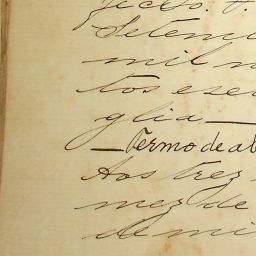 Setem
mil n
tos e se
glia
Termo de ab
Aos trez
mez de
de mi